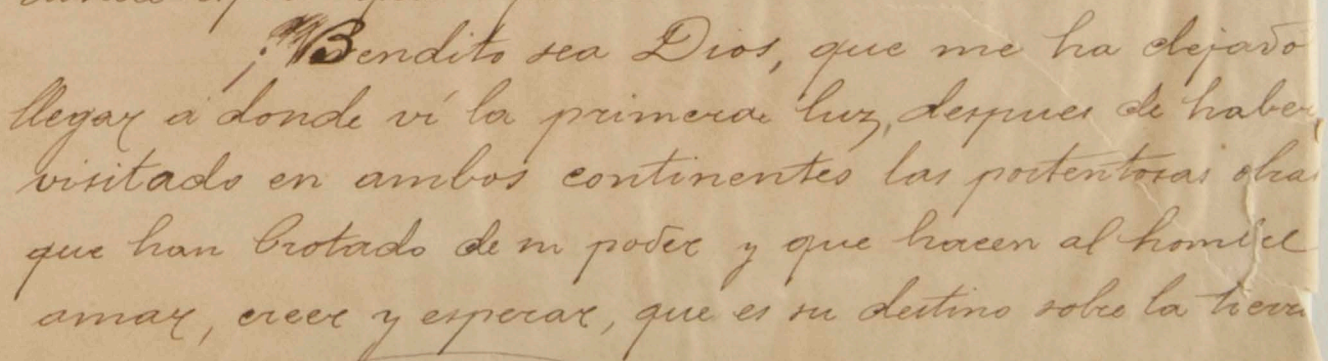 ¡Bendito sea Dios, que me ha dejado
llegar á donde ví la primera luz, despues de haber
visitado en ambos continentes las portentosas obras
que han brotado de su poder y que hacen al hombre
amar, creer y esperar, que es su destino sobre la tierra